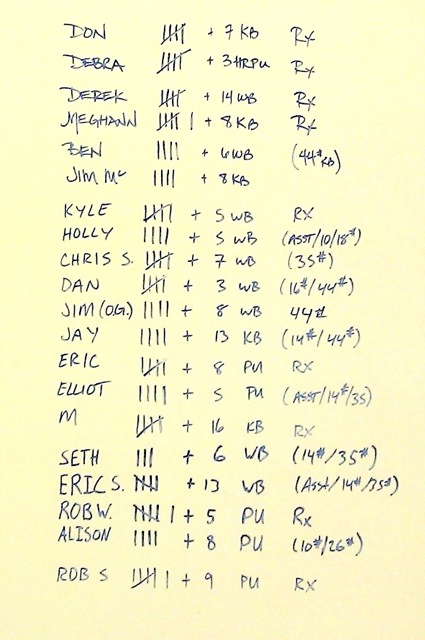 DON 𝍸 + 7 KB Rx
DEBRA 𝍸 + 3HRPU Rx
DEREK 𝍸 + 14 WB Rx
MEGHANN 𝍸 | + 8KB Rx
BEN |||| + 6WB (44# KB)
JIM Mc |||| + 8KB
KYLE 𝍸 + 5 WB RX
HOLLY |||| + 5 WB (ASST/10/18#)
CHRIS S. 𝍸 + 7 WB (35#)
DAN 𝍸 + 3 WB (16#/44#)
JIM (O.G.) |||| + 8 WB 44#
JAY |||| + 13 KB (14#/44#)
ERIC 𝍸 + 8 PU RX
ELLIOT |||| + 5 PU (ASST/14#/35)
M 𝍸 + 16 KB Rx
SETH ||| + 6 WB (14#/35#)
ERIC S. 𝍸 + 13 WB (Asst/14#/35#)
ROB W. 𝍸 | + 5 PU Rx
ALISON |||| + 8 PU (10#/26#)
ROB S 𝍸 | + 9 PU RX